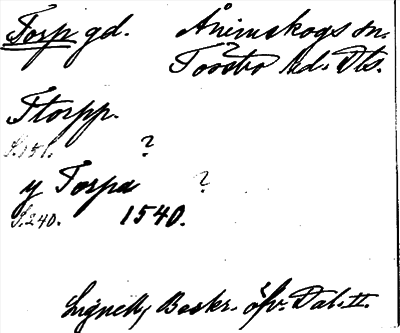 Torp gd. Ånimskogs sn.
Tössbo hd. Dls.
Ttorpp.
S. 151. ?
y Torpa ?
S. 240. 1540.
Lignell, Beskr. öfv. Dal. II.